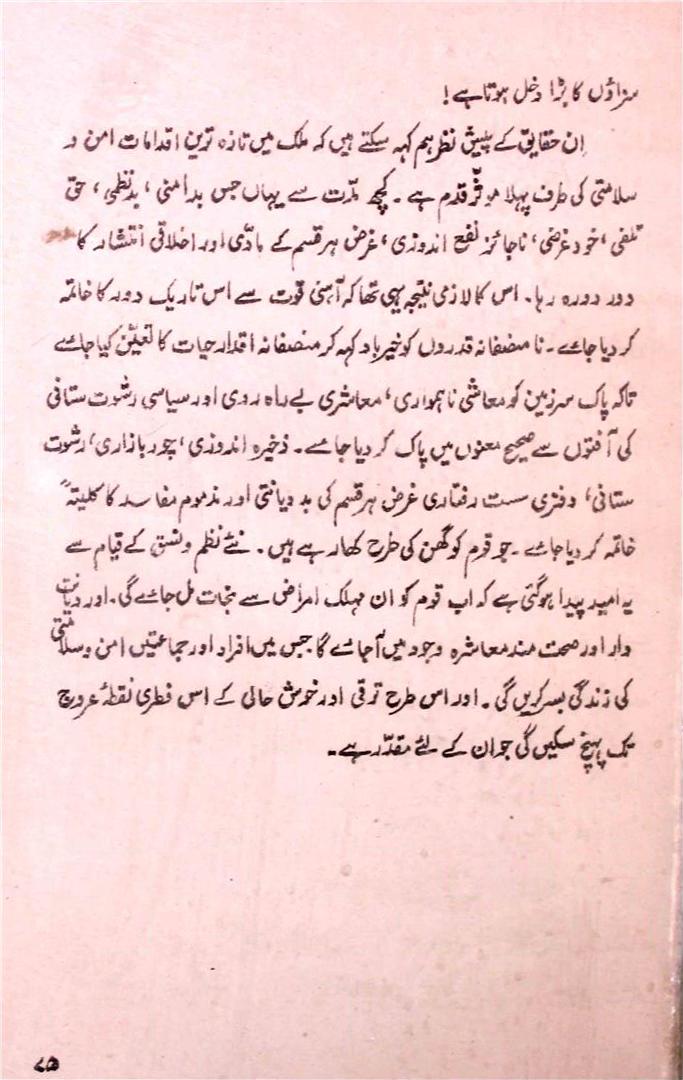 سزاؤں کا بڑا دخل ہوتا ہے!
اِن حقایق کے پیش نظر ہم کہہ سکتے ہیں کہ ملک میں تازہ ترین اقدامات امن و
سلامتی کی طرف پہلا موقّر قدم ہے۔ کچھ مدّت سے یہاں جس بدامنی، بدنظمی، حق
تلفی، خود غرضی، ناجائز نفع اندوزی، غرض ہر قسم کے مادّی اور اخلاقی انتشار کا
دور دورہ رہا۔ اس کا لازمی نتیجہ یہی تھا کہ آہنی قوت سے اس تاریک دور کا خاتمہ
کر دیا جائے۔ نا منصفانہ قدروں کو خیر باد کہہ کر منصفانہ اقدارِ حیات کا تعیّن کیا جائے
تاکہ پاک سرزمین کو معاشی ناہمواری، معاشری بے راہ روی اور سیاسی رشوت ستانی
کی آفتوں سے صحیح معنوں میں پاک کر دیا جائے۔ ذخیرہ اندوزی، چور بازاری، رشوت
ستانی، دفتری سست رفتاری غرض ہر قسم کی بد دیانتی اور مذموم مفاسد کا کلیتہً
خاتمہ کر دیا جائے۔ جو قوم کو گھن کی طرح کھا رہے ہیں۔ نئے نظم و نسق کے قیام سے
یہ امید پیدا ہو گئی ہے کہ اب قوم کو ان مہلک امراض سے نجات مل جائے گی۔ اور دیانت
دار اور صحت مند معاشرہ وجود میں آ جائے گا جس میں افراد اور جماعتیں امن و سلامتی
کی زندگی بسر کریں گی۔ اور اس طرح ترقی اور خوش حالی کے اس فطری نقطۂ عروج
تک پہنچ سکیں گی جو ان کے لئے مقدّر ہے۔
۷۵